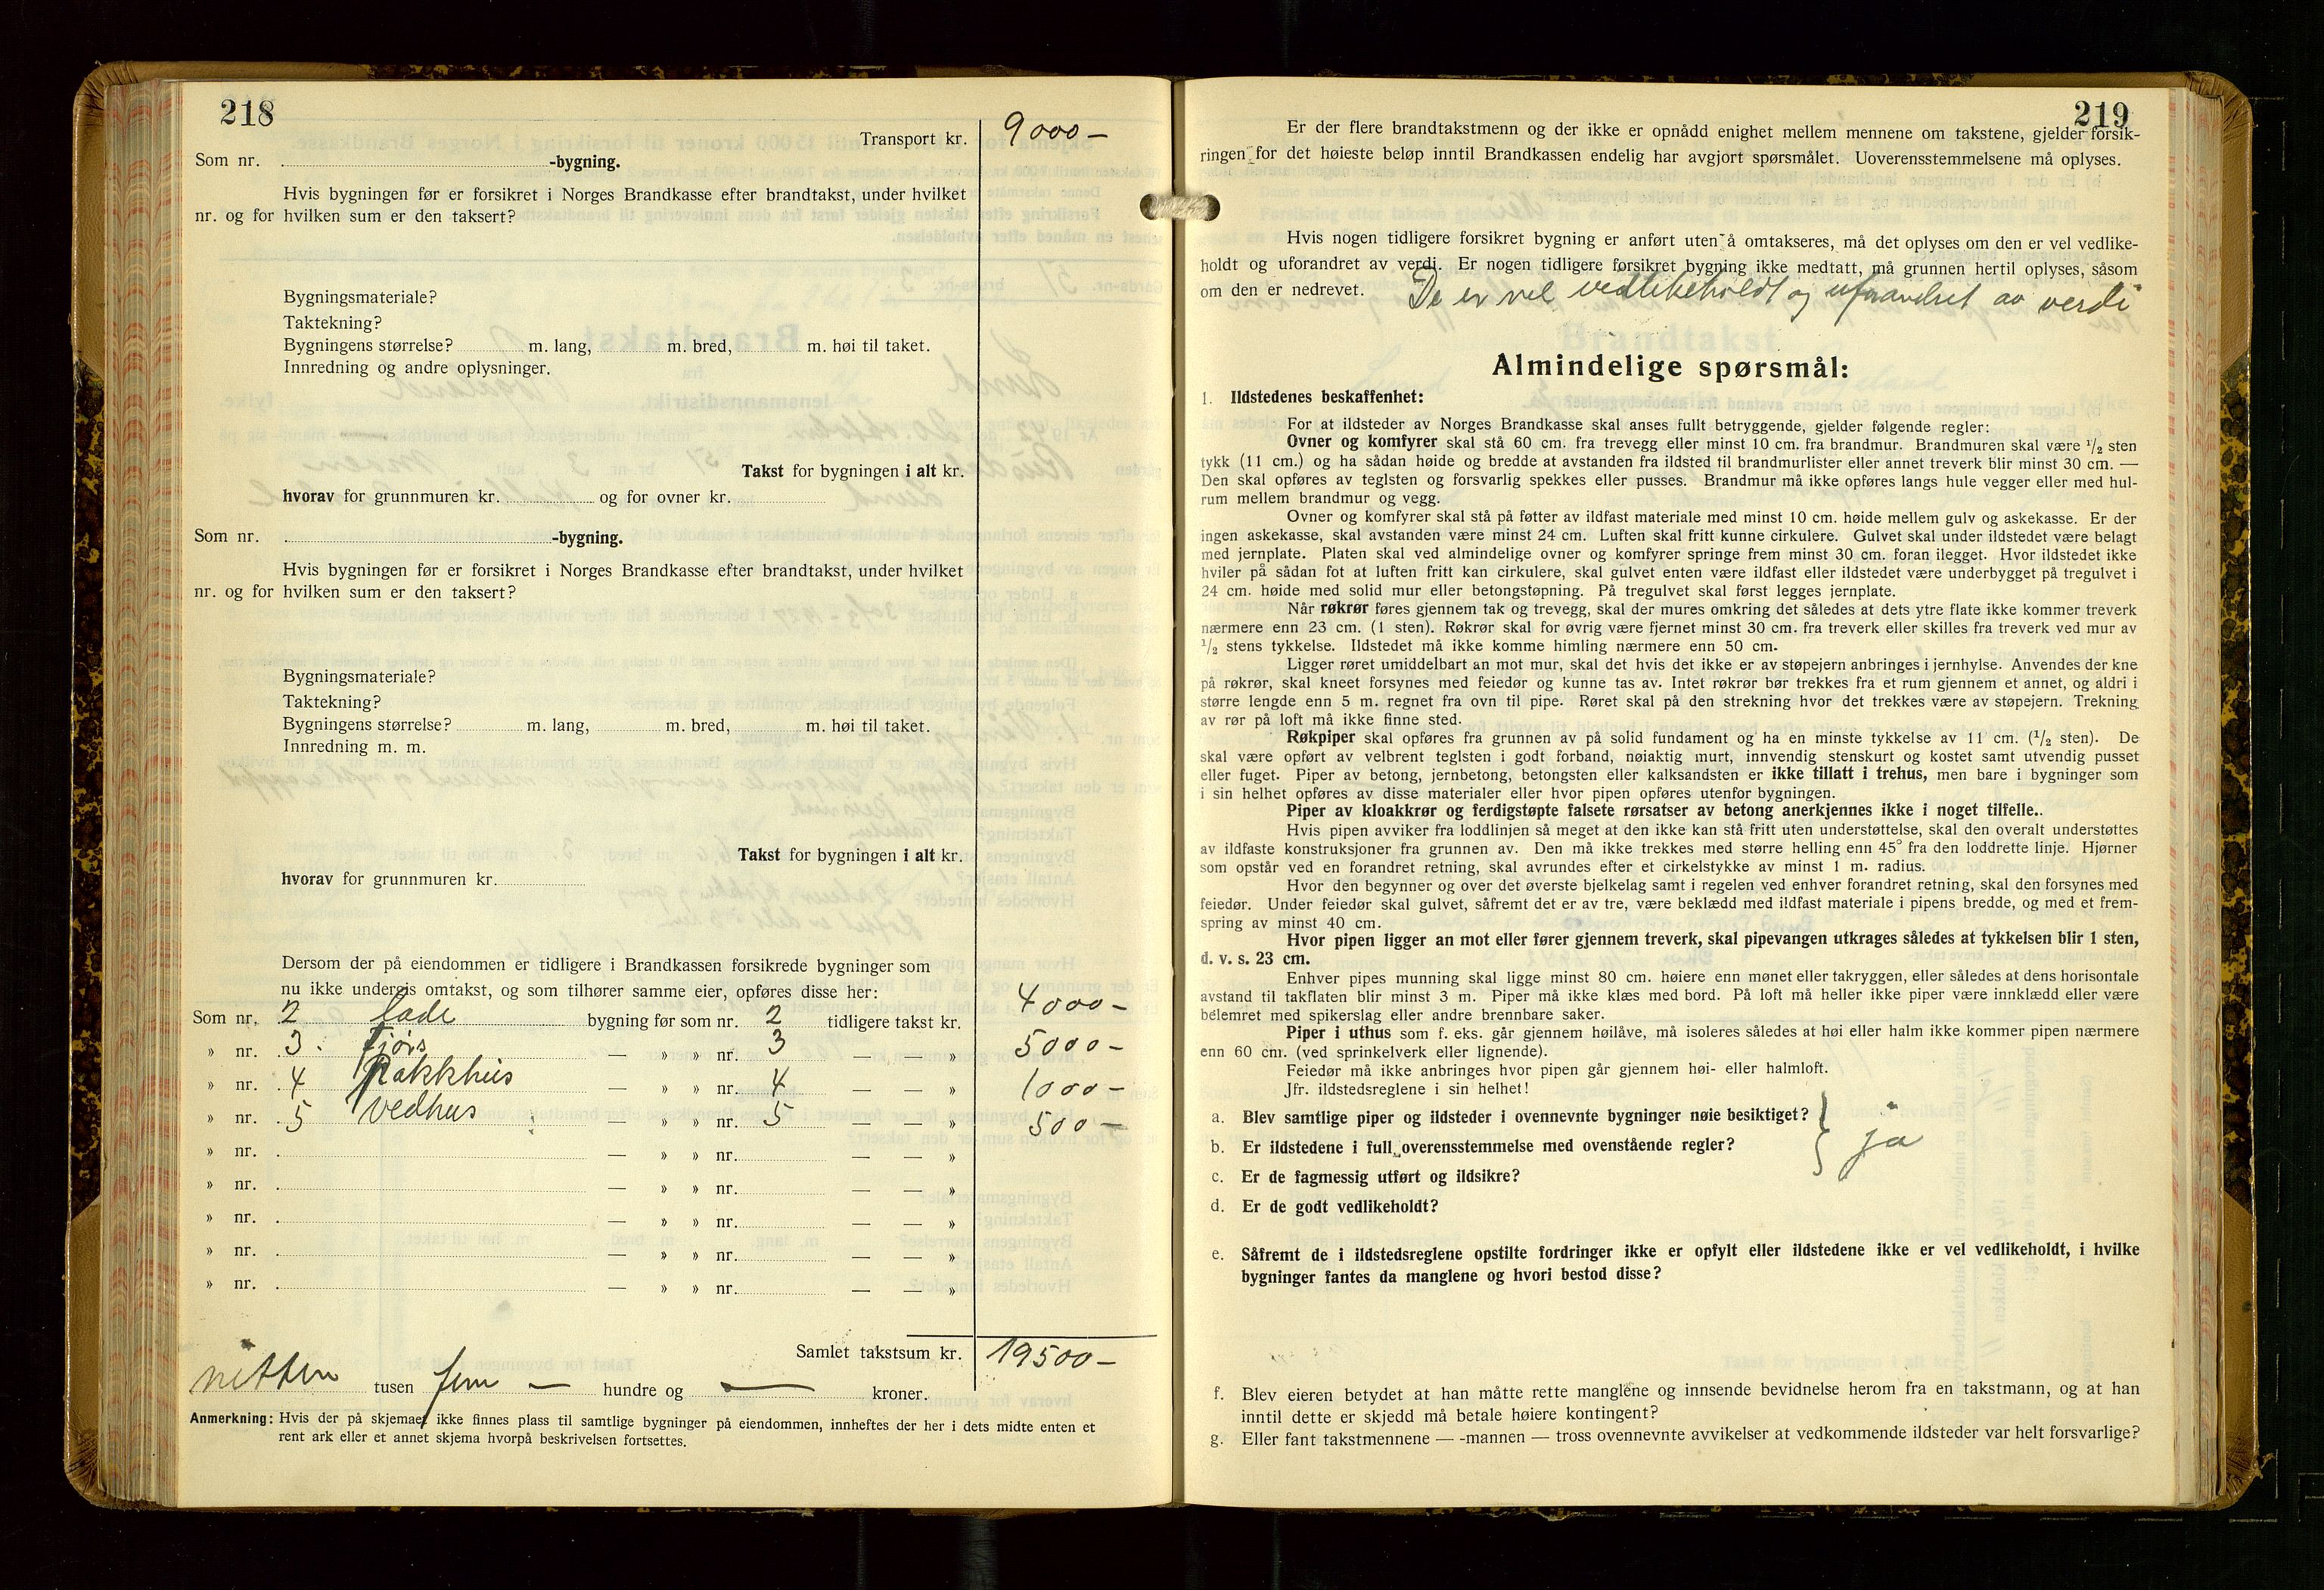 218
Transport kr. 9000 —
Som nr. -bygning.
Hvis bygningen før er forsikret i Norges Brandkasse efter brandtakst, under hvilket
nr. og for hvilken sum er den taksert?
Bygningsmateriale?
Taktekning?
Bygningens størrelse? m. lang, m. bred, m. høi til taket.
Innredning og andre oplysninger.
Takst for bygningen i alt kr.
hvorav for grunnmuren kr. og for ovner kr.
Som nr. -bygning.
Hvis bygningen før er forsikret i Norges Brandkasse efter brandtakst, under hvilket
nr. og for hvilken sum er den taksert?
Bygningsmateriale?
Taktekning?
Bygningens størrelse? m. lang, m. bred, m. høi til taket.
Innredning m. m.
Takst for bygningen i alt kr.
hvorav for grunnmuren kr.
Dersom der på eiendommen er tidligere i Brandkassen forsikrede bygninger som
nu ikke undergis omtakst, og som tilhører samme eier, opføres disse her:
Som nr. 2 lade bygning før som nr. 2 tidligere takst kr. 4000 —
» nr. 3. Fjøs — » » nr. 3 — — » 5000 —
» nr. 4 Rakkhus — » » nr. 4 — — » 1000 —
» nr. 5 Vedhus — » » nr. 5 — — » 500 —
» nr. — » » nr. — — »
» nr. — » » nr. — — »
» nr. — » » nr. — — »
» nr. — » » nr. — — »
» nr. — » » nr. — — »
Samlet takstsum kr. 19500 —
nitten tusen fem — hundre og — kroner.
Anmerkning: Hvis der på skjemaet ikke finnes plass til samtlige bygninger på eiendommen, innheftes der her i dets midte enten et
rent ark eller et annet skjema hvorpå beskrivelsen fortsettes.
219
Er der flere brandtakstmenn og der ikke er opnådd enighet mellem mennene om takstene, gjelder forsik-
ringen for det høieste beløp inntil Brandkassen endelig har avgjort spørsmålet. Uoverensstemmelsene må oplyses.
Hvis nogen tidligere forsikret bygning er anført uten å omtakseres, må det oplyses om den er vel vedlike-
holdt og uforandret av verdi. Er nogen tidligere forsikret bygning ikke medtatt, må grunnen hertil oplyses, såsom
om den er nedrevet. De er vel vedlikeholdt og uforandret av verdi
Almindelige spørsmål:
1. Ildstedenes beskaffenhet:
For at ildsteder av Norges Brandkasse skal anses fullt betryggende, gjelder følgende regler:
Ovner og komfyrer skal stå 60 cm. fra trevegg eller minst 10 cm. fra brandmur. Brandmuren skal være 1/2 sten
tykk (11 cm.) og ha sådan høide og bredde at avstanden fra ildsted til brandmurlister eller annet treverk blir minst 30 cm. —
Den skal opføres av teglsten og forsvarlig spekkes eller pusses. Brandmur må ikke opføres langs hule vegger eller med hul-
rum mellem brandmur og vegg.
Ovner og komfyrer skal stå på føtter av ildfast materiale med minst 10 cm. høide mellem gulv og askekasse. Er der
ingen askekasse, skal avstanden være minst 24 cm. Luften skal fritt kunne cirkulere. Gulvet skal under ildstedet være belagt
med jernplate. Platen skal ved almindelige ovner og komfyrer springe frem minst 30 cm. foran ilegget. Hvor ildstedet ikke
hviler på sådan fot at luften fritt kan cirkulere, skal gulvet enten være ildfast eller ildstedet være underbygget på tregulvet i
24 cm. høide med solid mur eller betongstøpning. På tregulvet skal først legges jernplate.
Når røkrør føres gjennem tak og trevegg, skal der mures omkring det således at dets ytre flate ikke kommer treverk
nærmere enn 23 cm. (1 sten). Røkrør skal for øvrig være fjernet minst 30 cm. fra treverk eller skilles fra treverk ved mur av
1/2 stens tykkelse. Ildstedet må ikke komme himling nærmere enn 50 cm.
Ligger røret umiddelbart an mot mur, skal det hvis det ikke er av støpejern anbringes i jernhylse. Anvendes der kne
på røkrør, skal kneet forsynes med feiedør og kunne tas av. Intet røkrør bør trekkes fra et rum gjennem et annet, og aldri i
større lengde enn 5 m. regnet fra ovn til pipe. Røret skal på den strekning hvor det trekkes være av støpejern. Trekning
av rør på loft må ikke finne sted.
Røkpiper skal opføres fra grunnen av på solid fundament og ha en minste tykkelse av 11 cm. (1/2 sten). De
skal være opført av velbrent teglsten i godt forband, nøiaktig murt, innvendig stenskurt og kostet samt utvendig pusset
eller fuget. Piper av betong, jernbetong, betongsten eller kalksandsten er ikke tillatt i trehus, men bare i bygninger som
i sin helhet opføres av disse materialer eller hvor pipen opføres utenfor bygningen.
Piper av kloakkrør og ferdigstøpte falsete rørsatser av betong anerkjennes ikke i noget tilfelle..
Hvis pipen avviker fra loddlinjen så meget at den ikke kan stå fritt uten understøttelse, skal den overalt understøttes
av ildfaste konstruksjoner fra grunnen av. Den må ikke trekkes med større helling enn 45° fra den loddrette linje. Hjørner
som opstår ved en forandret retning, skal avrundes efter et cirkelstykke av minst 1 m. radius.
Hvor den begynner og over det øverste bjelkelag samt i regelen ved enhver forandret retning, skal den forsynes med
feiedør. Under feiedør skal gulvet, såfremt det er av tre, være beklædd med ildfast materiale i pipens bredde, og med et frem-
spring av minst 40 cm.
Hvor pipen ligger an mot eller fører gjennem treverk, skal pipevangen utkrages således at tykkelsen blir 1 sten,
d. v. s. 23 cm.
Enhver pipes munning skal ligge minst 80 cm. høiere enn mønet eller takryggen, eller således at dens horisontale
avstand til takflaten blir minst 3 m. Piper må ikke klæs med bord. På loft må heller ikke piper være innklædd eller være
belemret med spikerslag eller andre brennbare saker.
Piper i uthus som f. eks. går gjennem høilåve, må isoleres således at høi eller halm ikke kommer pipen nærmere
enn 60 cm. (ved sprinkelverk eller lignende).
Feiedør må ikke anbringes hvor pipen går gjennem høi- eller halmloft.
Jfr. ildstedsreglene i sin helhet!
a. Blev samtlige piper og ildsteder i ovennevnte bygninger nøie besiktiget?
b. Er ildstedene i full overensstemmelse med ovenstående regler? ja
c. Er de fagmessig utført og ildsikre?
d. Er de godt vedlikeholdt?
e. Såfremt de i ildstedsreglene opstilte fordringer ikke er opfylt eller ildstedene ikke er vel vedlikeholdt, i hvilke
bygninger fantes da manglene og hvori bestod disse?
f. Blev eieren betydet at han måtte rette manglene og innsende bevidnelse herom fra en takstmann, og at han
inntil dette er skjedd må betale høiere kontingent?
g. Eller fant takstmennene — -mannen — tross ovennevnte avvikelser at vedkommende ildsteder var helt forsvarlige?